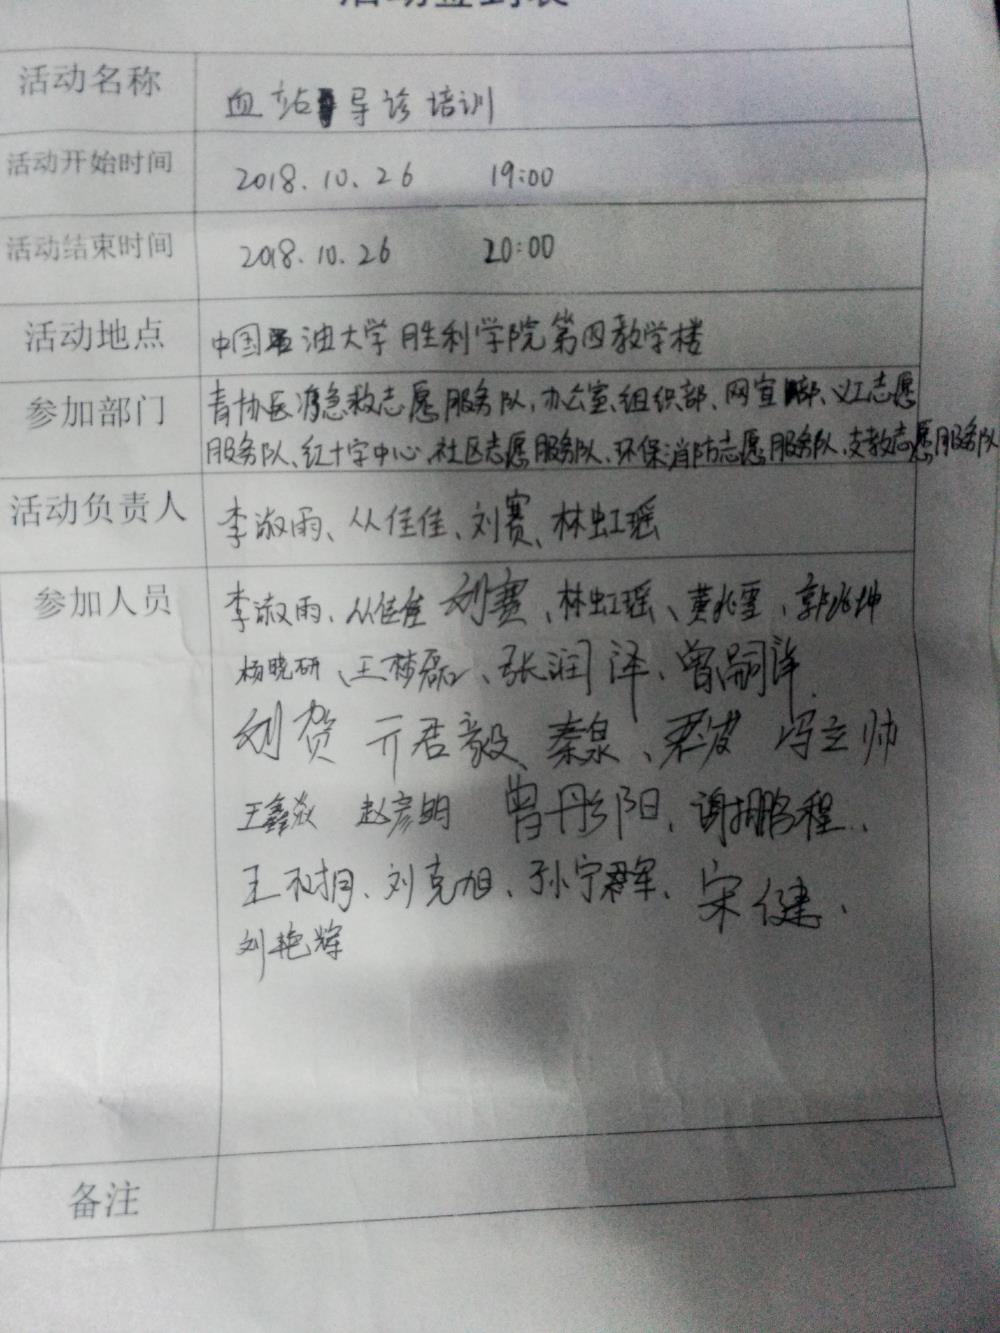 活动签到表
活动名称
血站导诊培训
活动开始时间
2018.10.26 19:00
活动结束时间
2018.10.26 20:00
活动地点
中国油大学胜利学院第四教学楼
参加部门
青协医疗急救志愿服务队、办公室、组织部、网宣部、义工志愿
服务队、红十字中心、社区志愿服务队、环保消防志愿服务队、支教志愿服务队
活动负责人
李淑雨、从佳佳、刘赛、林虹瑶
参加人员
李淑雨、从佳佳 刘赛、林虹瑶、黄兆雪、郭兆坤
杨晓研、王梦磊、张润泽、曾嗣洋
刘贺 亓君毅、秦泉、冯立帅
王鑫焱 赵彦明 曾彤阳、谢鹏程
王树、刘克旭、孙宁群、宋健、
刘艳辉
备注